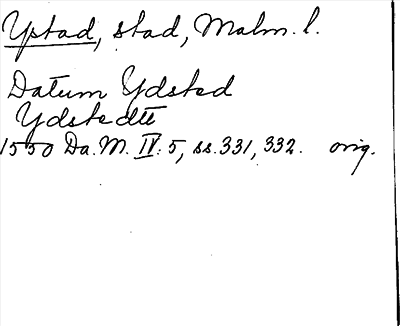 Ystad, stad, Malm. l.
Datum Ydsted
Ydstedtt
1530 Da. M. IV: 5, ss. 331, 332. orig.